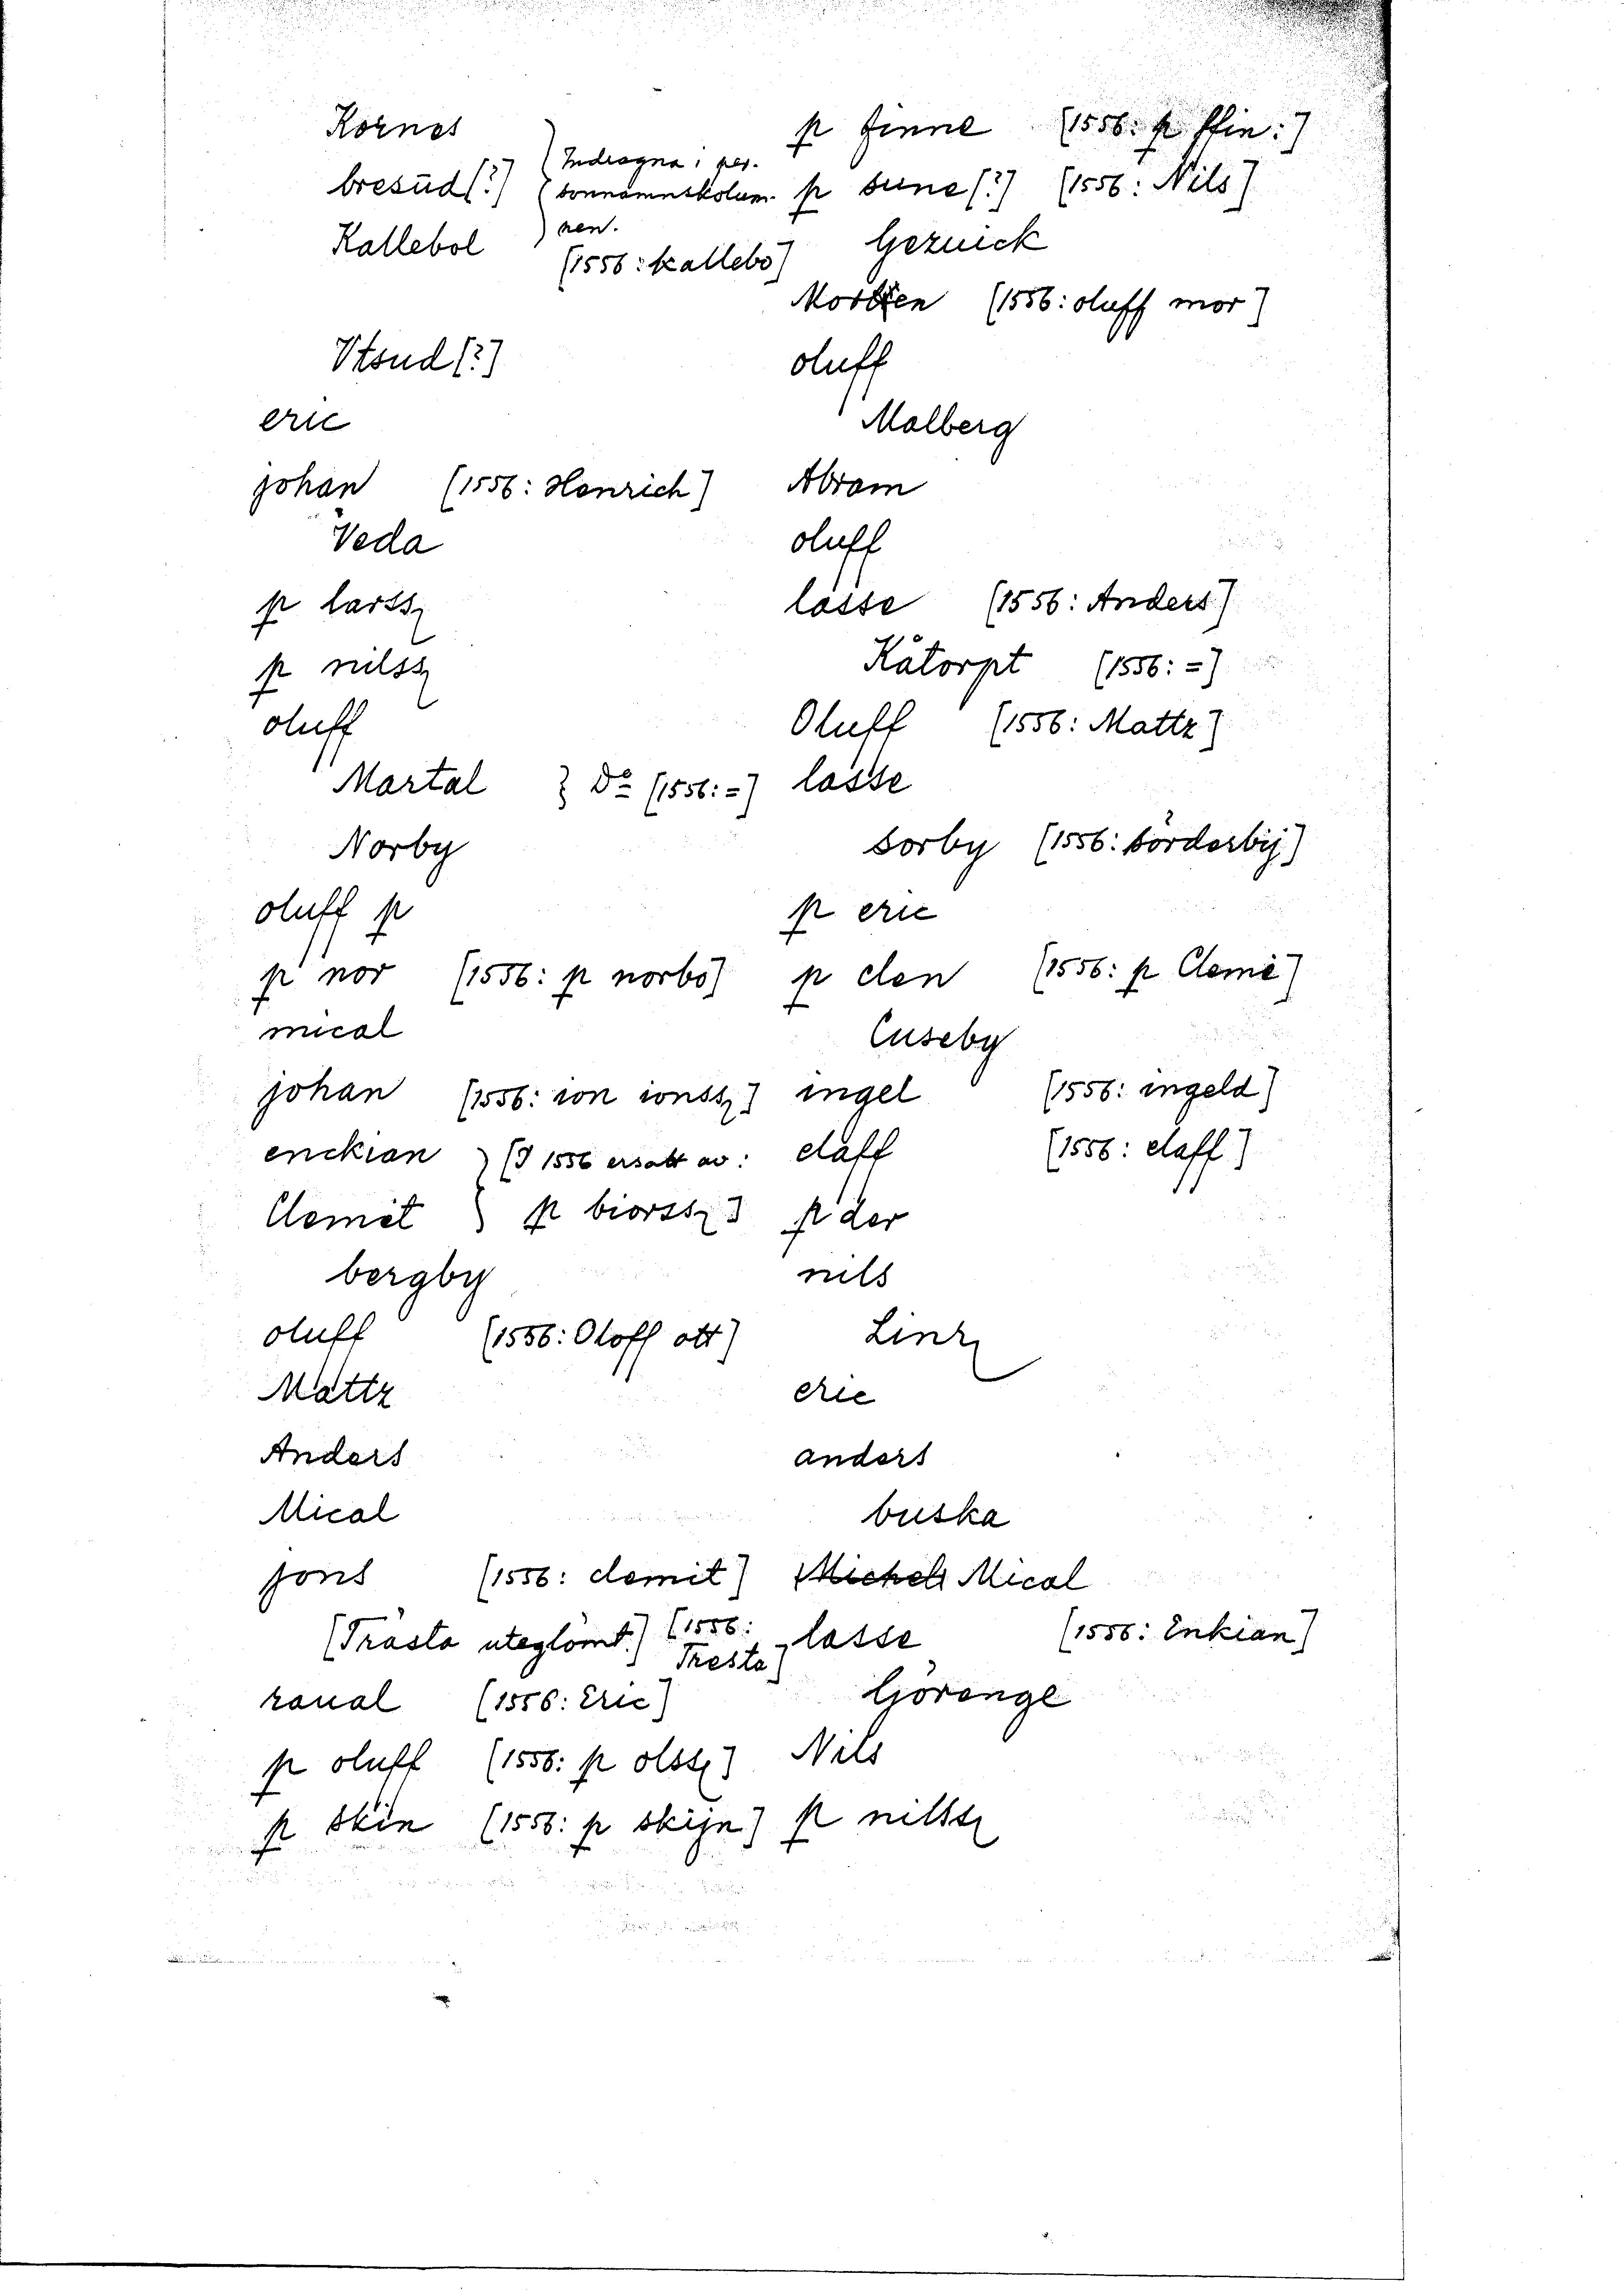 Kornes
bresūd [?]
} Indragna i per-
sonnamnskolum-
nen.
Kallebol
[1556: kallebo]
Vtsud [?]
eric
johan [1556: Henrich]
Veda
p larssz
p nilssz
oluff
Martal } Do [1556: =]
Norby
oluff p
p nor [1556: p norbo]
mical
johan [1556: ion ionssz]
enckian } [I 1556 ersatt av:
Clemet } p biorssz]
bergby
oluff [1556: Oloff ott]
Mattz
Anders
Mical
jons [1556: clemit]
[Trästa uteglömt.] [1556:
Tresta]
raual [1556: Eric]
p oluff [1556: p olssz]
p skin [1556: p skijn]
p finne [1556: p ffin:]
p sune [?] [1556: Nils]
Gezuick
Morten [1556: oluff mor]
oluff
Malberg
Abram
oluff
lasse [1556: Anders]
Kåtorpt [1556: =]
Oluff [1556: Mattz]
lasse
sorby [1556: sörderbij]
p eric
p clen [1556: p Cleme]
Cuseby
ingel [1556: ingeld]
elaff [1556: elaff]
p der
nils
Linz
eric
anders
buska
Michel Mical
lasse [1556: Enkian]
Görenge
Nils
p nilssz